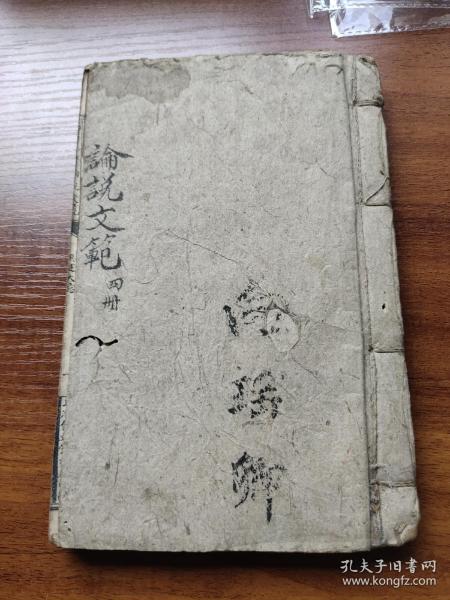 論説文範
四册
卿
孔夫子旧书网
www.kongfz.com